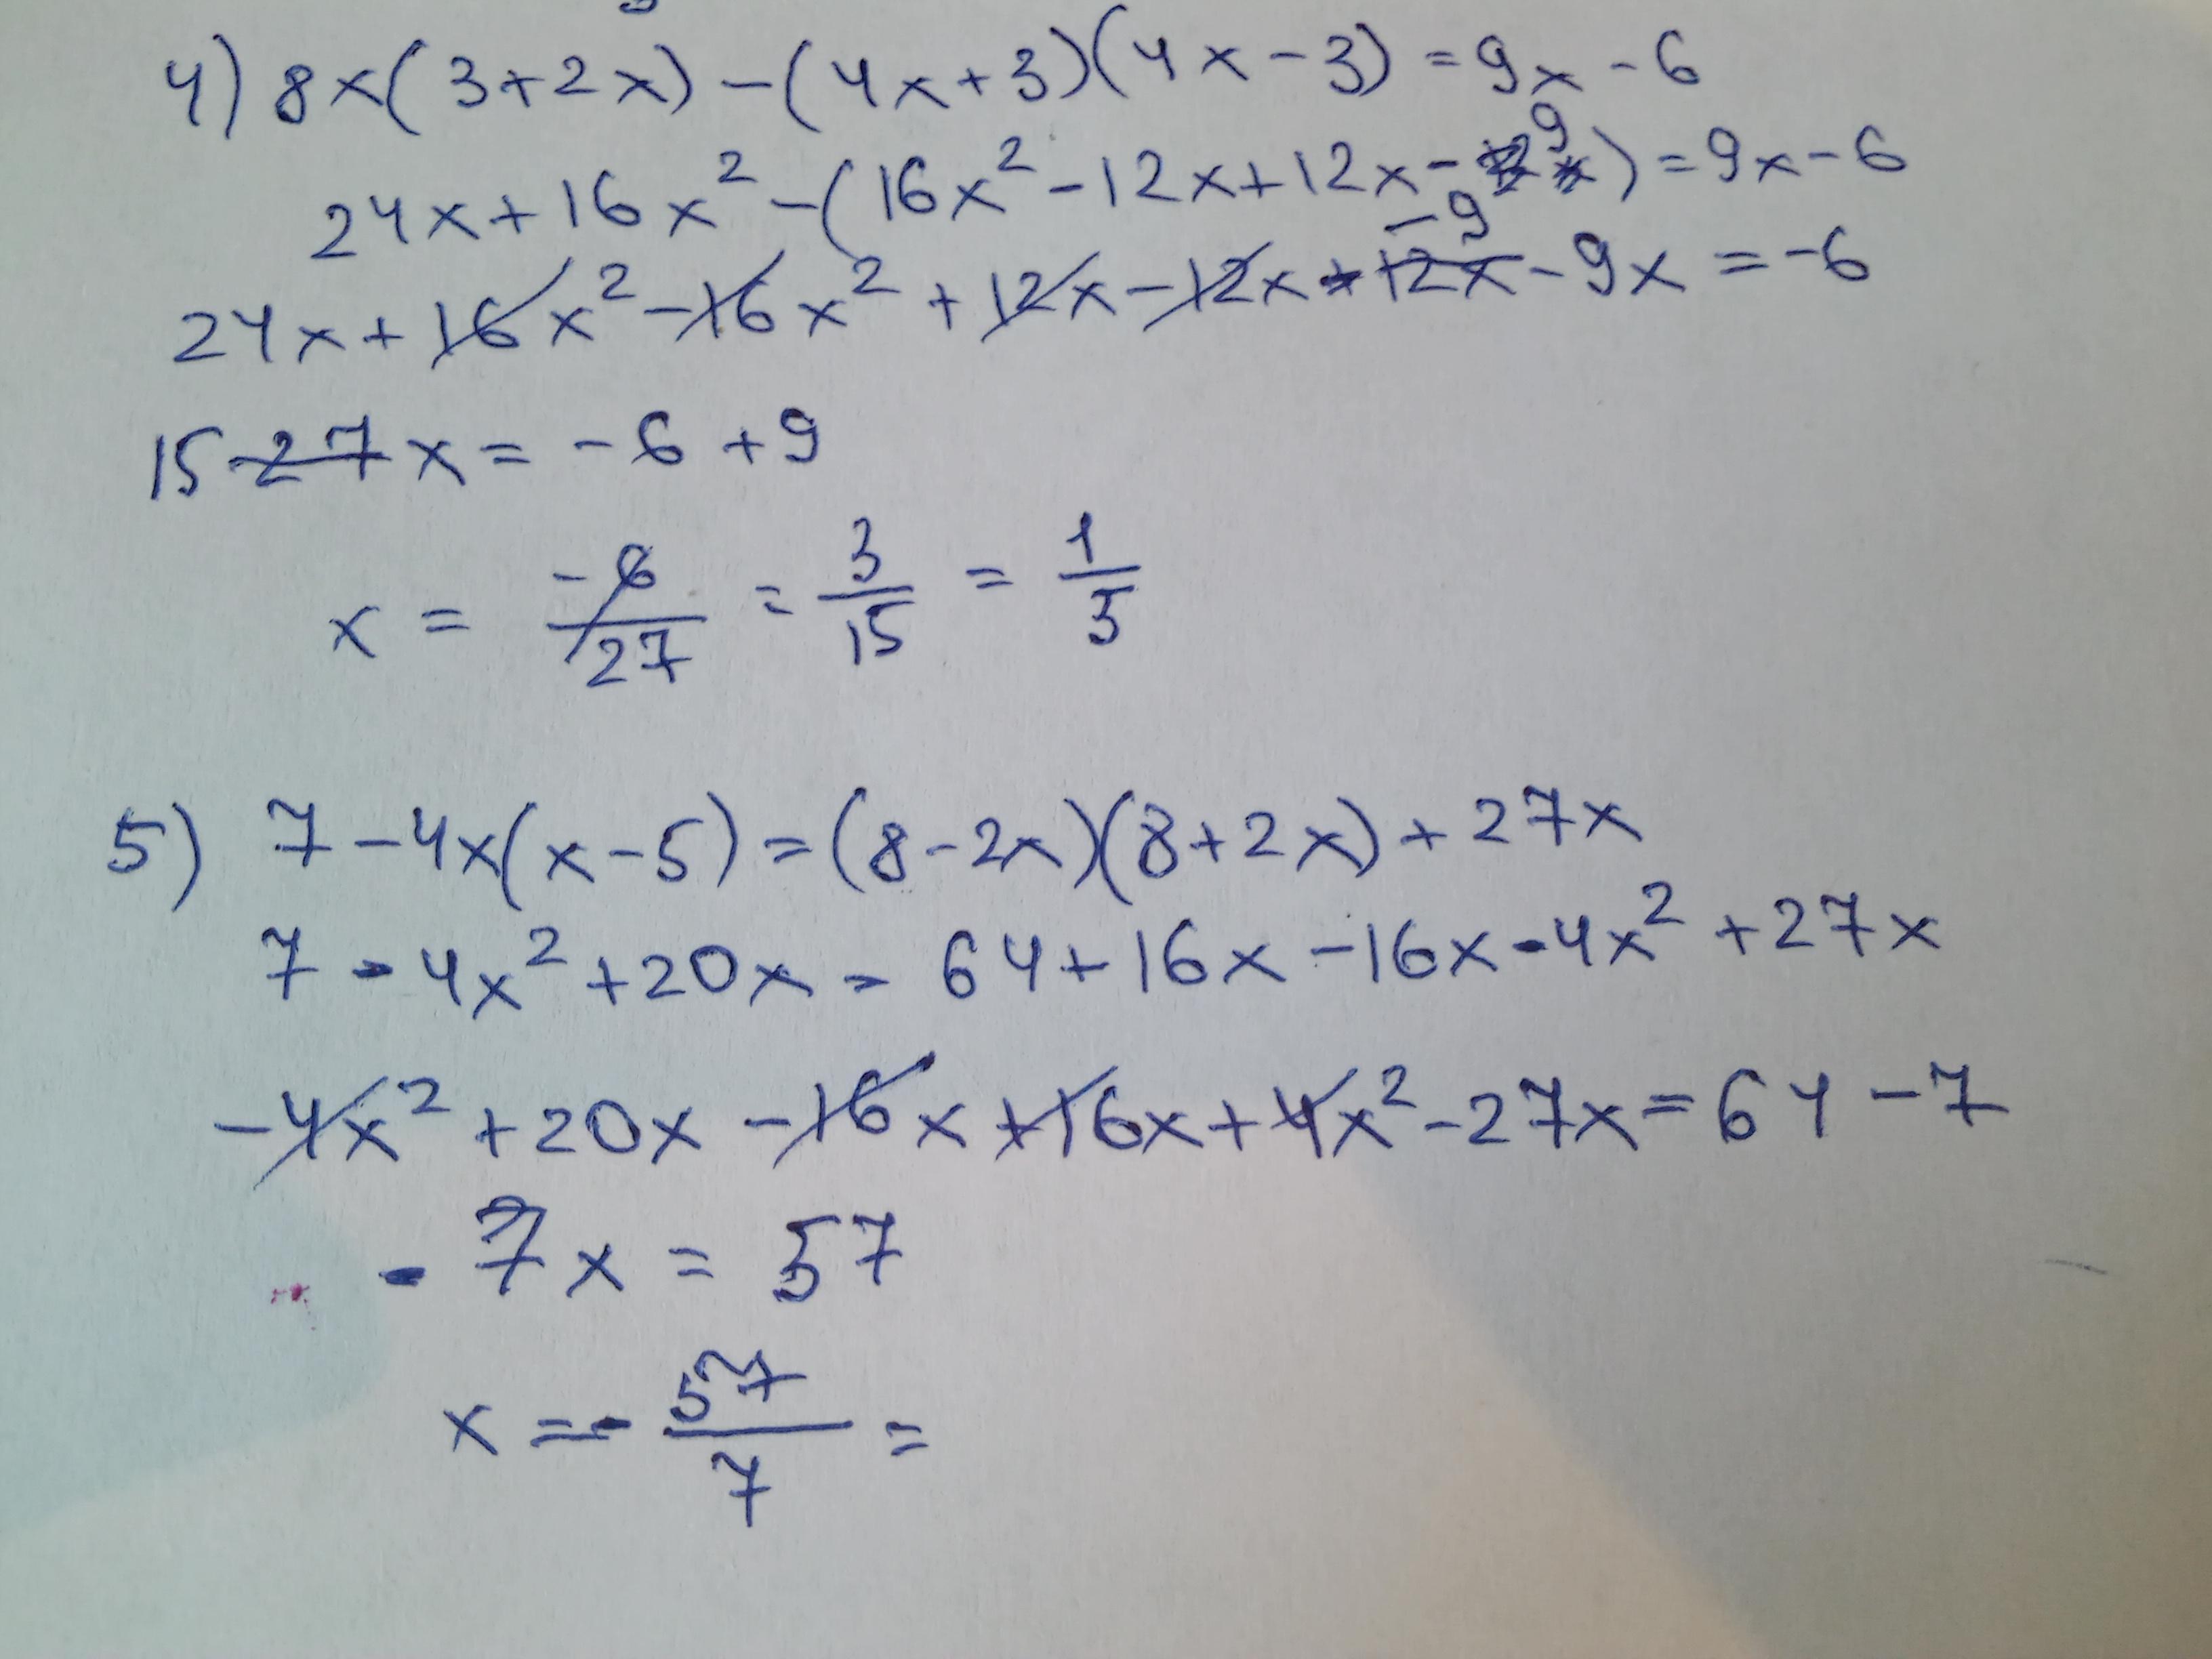 4) 8x(3+2x)-(4x+3)(4x-3)=9x-6
24x+16x²-(16x²-12x+12x-9)=9x-6
24x+16x²-16x²+12x-12x-9-9x=-6
15x=-6+9
x=-6/27=3/15=1/5
5) 7-4x(x-5)=(8-2x)(8+2x)+27x
7-4x²+20x=64+16x-16x-4x²+27x
-4x²+20x-16x+16x+4x²-27x=64-7
-7x=57
x=-57/7=